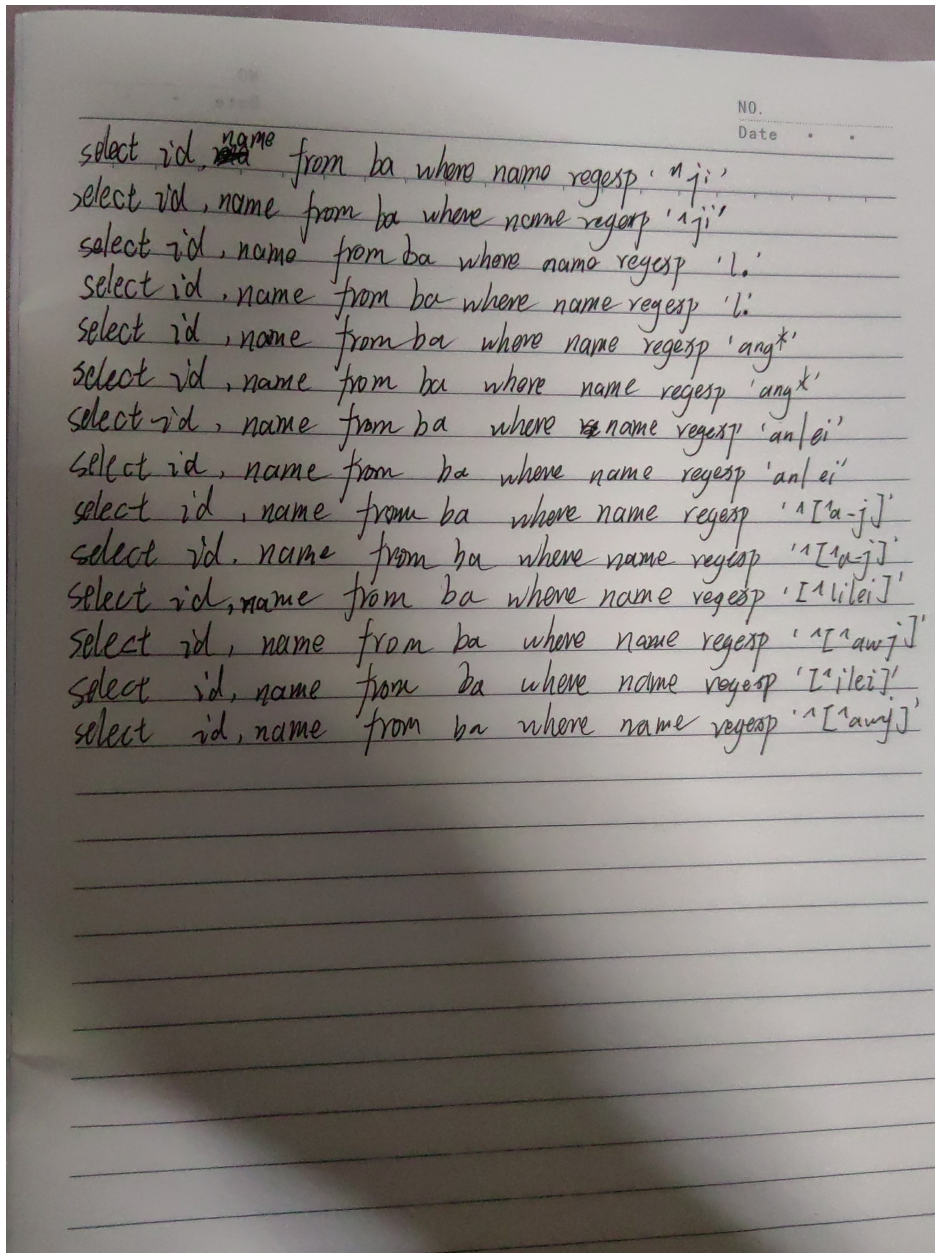 NO.
Date
select id, name from ba where name regexp '^ji'
select id, name from ba where name regexp '^ji'
select id, name from ba where name regexp 'l.'
select id, name from ba where name regexp 'l.'
select id, name from ba where name regexp 'ang*'
select id, name from ba where name regexp 'ang*'
select id, name from ba where name regexp 'an|ei'
select id, name from ba where name regexp 'an|ei'
select id, name from ba where name regexp '^[^a-j]'
select id, name from ba where name regexp '^[^a-j]'
select id, name from ba where name regexp '[^lilei]'
select id, name from ba where name regexp '^[^awj]'
select id, name from ba where name regexp '[^ilei]'
select id, name from ba where name regexp '^[^awj]'